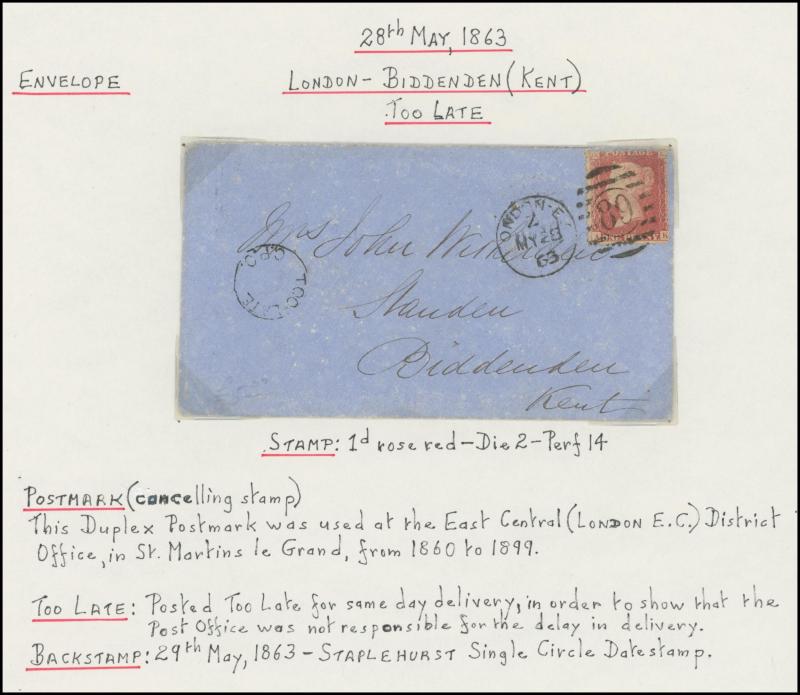 28th May, 1863
ENVELOPE
LONDON - BIDDENDEN (KENT)
TOO LATE
POSTAGE
LONDON·E.C
7
MY 28
63
89
Mrs John
G.P.O.
TOO-LATE
Standen
Biddenden
Kent
STAMP: 1d rose red - Die 2 - Perf 14
POSTMARK (cancelling stamp)
This Duplex Postmark was used at the East Central (LONDON E.C.) District
Office, in St. Martins le Grand, from 1860 to 1899.
TOO LATE: Posted Too Late for same day delivery, in order to show that the
Post Office was not responsible for the delay in delivery.
BACKSTAMP: 29th May, 1863 - STAPLEHURST Single Circle Datestamp.